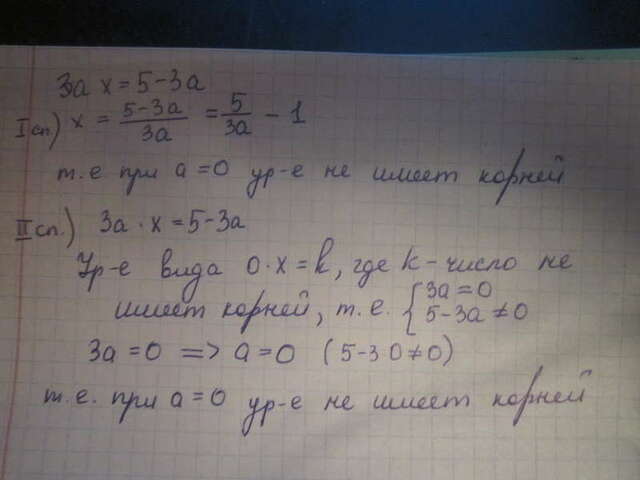 3a x = 5-3a
I сп.) x = (5-3a)/(3a) = 5/(3a) - 1
т.е при a=0 ур-е не имеет корней
II сп.) 3a · x = 5-3a
Ур-е вида 0·x=k, где k-число не
имеет корней, т.е. { 3a=0
5-3a≠0
3a=0 => a=0 (5-3·0≠0)
т.е. при a=0 ур-е не имеет корней